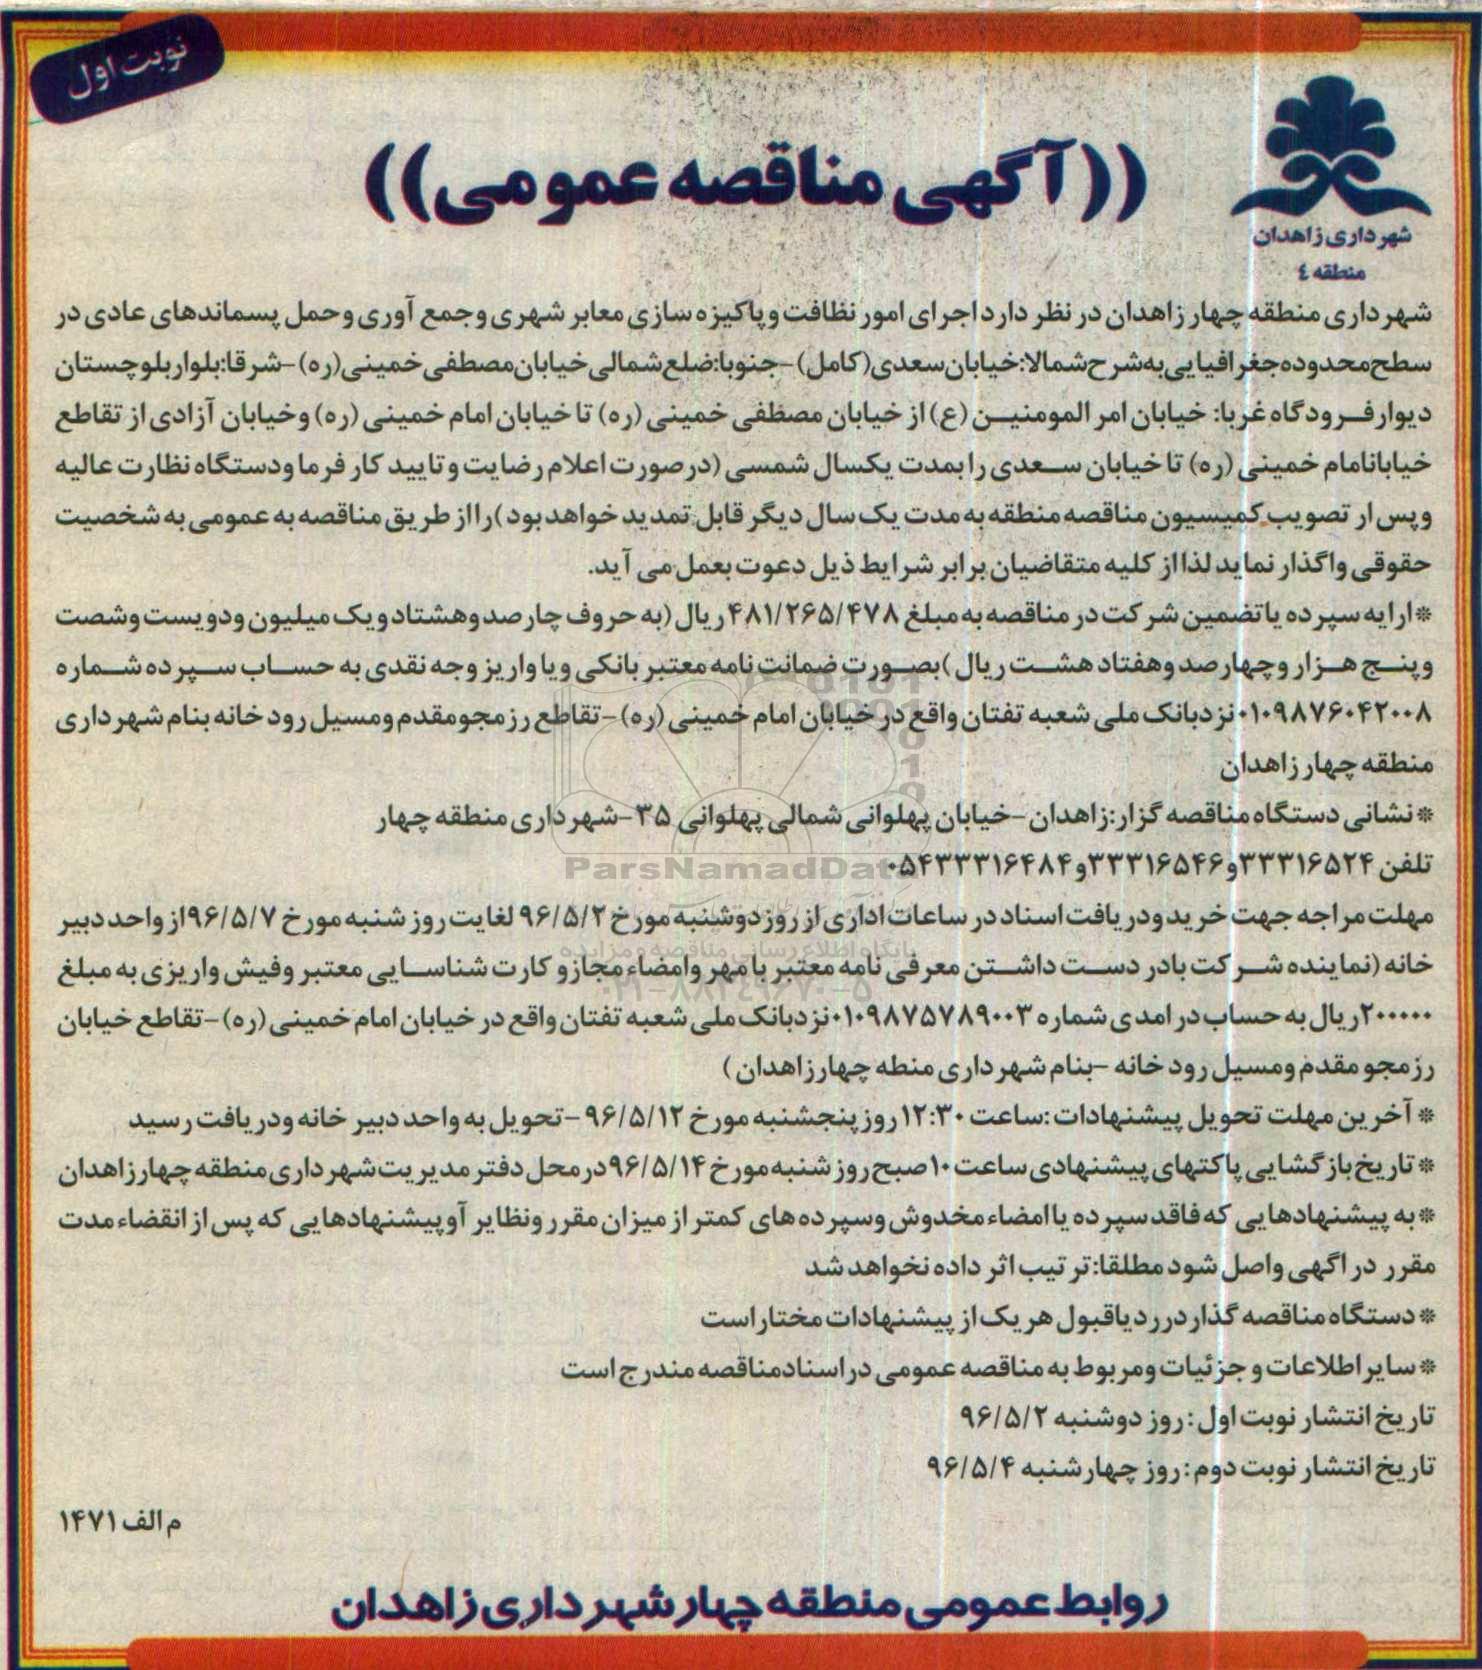 نوبت اول
شهرداری زاهدان
منطقه ٤
((آگهی مناقصه عمومی))
شهرداری منطقه چهار زاهدان در نظر دارد اجرای امور نظافت و پاکیزه سازی معابر شهری و جمع آوری و حمل پسماندهای عادی در
سطح محدوده جغرافیایی به شرح شمالا: خیابان سعدی (کامل) - جنوبا: ضلع شمالی خیابان مصطفی خمینی (ره) - شرقا: بلوار بلوچستان
دیوار فرودگاه غربا: خیابان امر المومنین (ع) از خیابان مصطفی خمینی (ره) تا خیابان امام خمینی (ره) و خیابان آزادی از تقاطع
خیابانامام خمینی (ره) تا خیابان سعدی را بمدت یکسال شمسی (در صورت اعلام رضایت و تایید کار فرما و دستگاه نظارت عالیه
و پس ار تصویب کمیسیون مناقصه منطقه به مدت یک سال دیگر قابل تمدید خواهد بود) را از طریق مناقصه به عمومی به شخصیت
حقوقی واگذار نماید لذا از کلیه متقاضیان برابر شرایط ذیل دعوت بعمل می آید.
* ارایه سپرده یا تضمین شرکت در مناقصه به مبلغ ۴۸۱/۲۶۵/۴۷۸ ریال (به حروف چارصد و هشتاد و یک میلیون و دویست و شصت
و پنج هزار و چهارصد و هفتاد هشت ریال) بصورت ضمانت نامه معتبر بانکی و یا واریز وجه نقدی به حساب سپرده شماره
۰۱۰۹۸۷۶۰۴۲۰۰۸ نزد بانک ملی شعبه تفتان واقع در خیابان امام خمینی (ره) - تقاطع رزمجو مقدم و مسیل رودخانه بنام شهرداری
منطقه چهار زاهدان
* نشانی دستگاه مناقصه گزار: زاهدان - خیابان پهلوانی شمالی پهلوانی ۳۵ - شهرداری منطقه چهار
تلفن ۳۳۳۱۶۵۲۴ و ۳۳۳۱۶۵۴۶ و ۰۵۴۳۳۳۱۶۴۸۴
ParsNamadData
مهلت مراجه جهت خرید و دریافت اسناد در ساعات اداری از روز دوشنبه مورخ ۹۶/۵/۲ لغایت روز شنبه مورخ ۹۶/۵/۷ از واحد دبیر
پایگاه اطلاع رسانی مناقصه و مزایده
خانه (نماینده شرکت بادر دست داشتن معرفی نامه معتبر با مهر و امضاء مجاز و کارت شناسایی معتبر و فیش واریزی به مبلغ
۲۰۰۰۰۰ ریال به حساب در امدی شماره ۰۱۰۹۸۷۵۷۸۹۰۰۳ نزد بانک ملی شعبه تفتان واقع در خیابان امام خمینی (ره) - تقاطع خیابان
رزمجو مقدم و مسیل رودخانه - بنام شهرداری منطه چهار زاهدان)
* آخرین مهلت تحویل پیشنهادات: ساعت ۱۲:۳۰ روز پنجشنبه مورخ ۹۶/۵/۱۲ - تحویل به واحد دبیر خانه و دریافت رسید
* تاریخ بازگشایی پاکتهای پیشنهادی ساعت ۱۰ صبح روز شنبه مورخ ۹۶/۵/۱۴ در محل دفتر مدیریت شهرداری منطقه چهار زاهدان
* به پیشنهادهایی که فاقد سپرده یا امضاء مخدوش و سپرده های کمتر از میزان مقرر و نظایر آو پیشنهادهایی که پس از انقضاء مدت
مقرر در اگهی واصل شود مطلقا: ترتیب اثر داده نخواهد شد
* دستگاه مناقصه گذار در رد یا قبول هر یک از پیشنهادات مختار است
* سایر اطلاعات و جزئیات و مربوط به مناقصه عمومی در اسناد مناقصه مندرج است
تاریخ انتشار نوبت اول: روز دوشنبه ۹۶/۵/۲
تاریخ انتشار نوبت دوم: روز چهارشنبه ۹۶/۵/۴
م الف ۱۴۷۱
روابط عمومی منطقه چهار شهرداری زاهدان